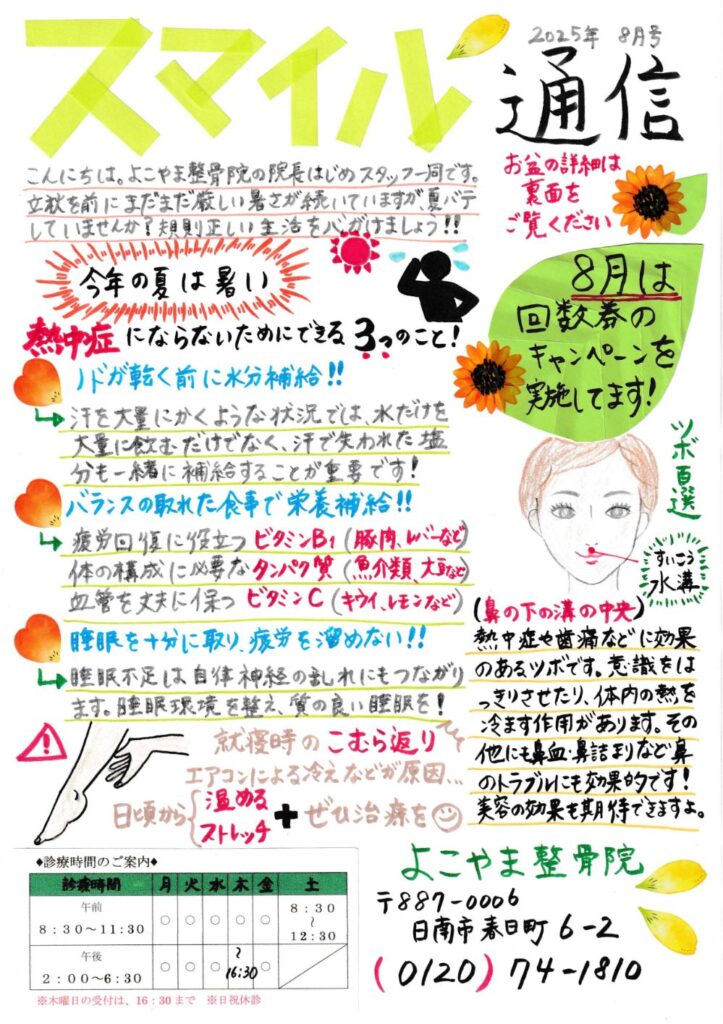 スマイル
2025年 8月号
通信
お盆の詳細は
裏面を
ご覧ください
こんにちは。よこやま整骨院の院長はじめスタッフ一同です。
立秋を前にまだまだ厳しい暑さが続いていますが、夏バテ
していませんか?規則正しい生活を心がけましょう!!
今年の夏は暑い
8月は
回数券の
キャンペーンを
実施してます!
熱中症にならないためにできる3つのこと!
ノドが乾く前に水分補給!!
汗を大量にかくような状況では、水だけを
大量に飲むだけでなく、汗で失われた塩
分も一緒に補給することが重要です!
バランスの取れた食事で栄養補給!!
疲労回復に役立つ ビタミンB1 (豚肉、レバーなど)
体の構成に必要な タンパク質 (魚介類、大豆など)
血管を丈夫に保つ ビタミンC (キウイ、レモンなど)
睡眠を十分に取り、疲労を溜めない!!
睡眠不足は自律神経の乱れにもつながり
ます。睡眠環境を整え、質の良い睡眠を!
就寝時の こむら返り
エアコンによる冷えなどが原因...
日頃から 温める
ストレッチ
+ ぜひ治療を
ツボ百選
すいこう
水溝
(鼻の下の溝の中央)
熱中症や歯痛などに効果
のあるツボです。意識をは
っきりさせたり、体内の熱を
冷ます作用があります。その
他にも鼻血・鼻詰まりなど鼻
のトラブルにも効果的です!
美容の効果も期待できますよ。
◆診療時間のご案内◆
診療時間 月 火 水 木 金 土
午前
8:30~11:30 ○ ○ ○ ○ ○ 8:30~12:30
午後
2:00~6:30 ○ ○ ○ ~16:30 ○
※木曜日の受付は、16:30まで ※日祝休診
よこやま整骨院
〒887-0006
日南市春日町 6-2
(0120) 74-1810